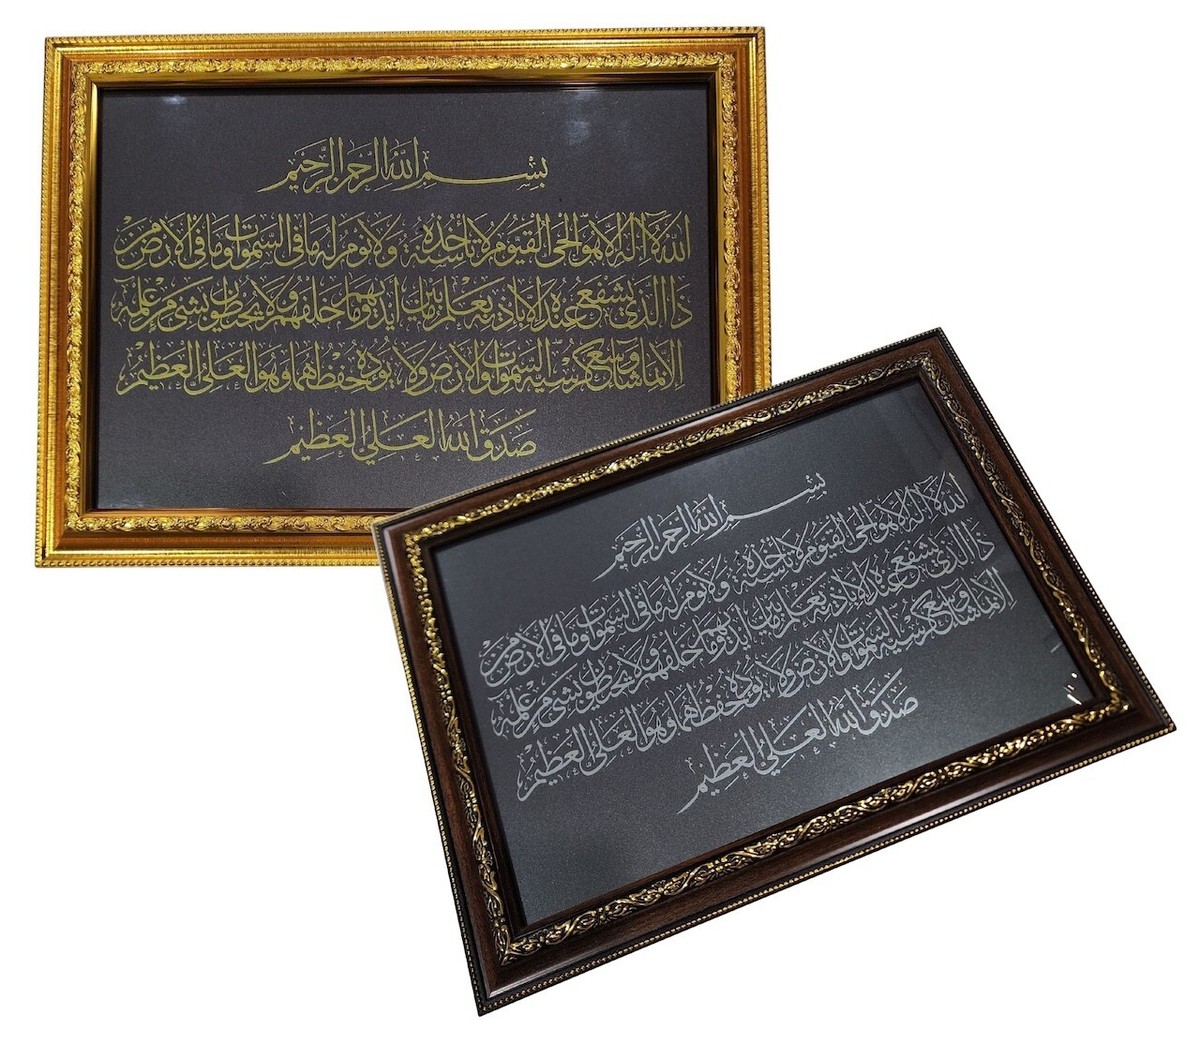 بِسْمِ اللهِ الرَّحْمٰنِ الرَّحِيْمِ
اللهُ لَا إِلٰهَ إِلَّا هُوَ الْحَيُّ الْقَيُّومُ لَا تَأْخُذُهُ سِنَةٌ وَلَا نَوْمٌ لَهُ مَا فِي السَّمٰوَاتِ وَمَا فِي الْأَرْضِ مَنْ
ذَا الَّذِي يَشْفَعُ عِنْدَهُ إِلَّا بِإِذْنِهِ يَعْلَمُ مَا بَيْنَ أَيْدِيهِمْ وَمَا خَلْفَهُمْ وَلَا يُحِيطُونَ بِشَيْءٍ مِنْ عِلْمِهِ
إِلَّا بِمَا شَاءَ وَسِعَ كُرْسِيُّهُ السَّمٰوَاتِ وَالْأَرْضَ وَلَا يَئُودُهُ حِفْظُهُمَا وَهُوَ الْعَلِيُّ الْعَظِيمُ
صَدَقَ اللهُ الْعَلِيُّ الْعَظِيْمُ
بِسْمِ اللهِ الرَّحْمٰنِ الرَّحِيْمِ
اللهُ لَا إِلٰهَ إِلَّا هُوَ الْحَيُّ الْقَيُّومُ لَا تَأْخُذُهُ سِنَةٌ وَلَا نَوْمٌ لَهُ مَا فِي السَّمٰوَاتِ وَمَا فِي الْأَرْضِ مَنْ
ذَا الَّذِي يَشْفَعُ عِنْدَهُ إِلَّا بِإِذْنِهِ يَعْلَمُ مَا بَيْنَ أَيْدِيهِمْ وَمَا خَلْفَهُمْ وَلَا يُحِيطُونَ بِشَيْءٍ مِنْ عِلْمِهِ
إِلَّا بِمَا شَاءَ وَسِعَ كُرْسِيُّهُ السَّمٰوَاتِ وَالْأَرْضَ وَلَا يَئُودُهُ حِفْظُهُمَا وَهُوَ الْعَلِيُّ الْعَظِيمُ
صَدَقَ اللهُ الْعَلِيُّ الْعَظِيْمُ